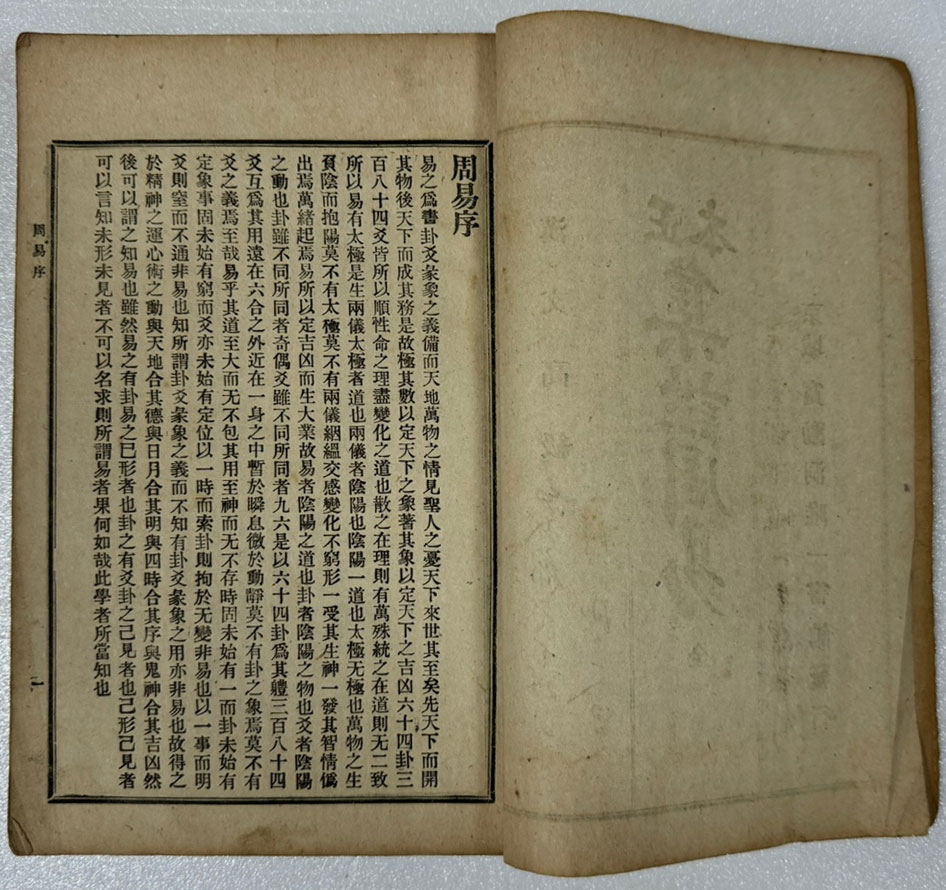 周易序
易之爲書卦爻彖象之義備而天地萬物之情見聖人之憂天下來世其至矣先天下而開
其物後天下而成其務是故極其數以定天下之象著其象以定天下之吉凶六十四卦三
百八十四爻皆所以順性命之理盡變化之道也散之在理則有萬殊統之在道則无二致
所以易有太極是生兩儀太極者道也兩儀者陰陽也陰陽一道也太極无極也萬物之生
負陰而抱陽莫不有太極莫不有兩儀絪縕交感變化不窮形一受其生神一發其智情僞
出焉萬緒起焉易所以定吉凶而生大業故易者陰陽之道也卦者陰陽之物也爻者陰陽
之動也卦雖不同所同者奇偶爻雖不同所同者九六是以六十四卦爲其體三百八十四
爻互爲其用遠在六合之外近在一身之中暫於瞬息微於動靜莫不有卦之象焉莫不有
爻之義焉至哉易乎其道至大而无不包其用至神而无不存時固未始有一而卦未始有
定象事固未始有窮而爻亦未始有定位以一時而索卦則拘於无變非易也以一事而明
爻則窒而不通非易也知所謂卦爻彖象之義而不知有卦爻彖象之用亦非易也故得之
於精神之運心術之動與天地合其德與日月合其明與四時合其序與鬼神合其吉凶然
後可以謂之知易也雖然易之有卦易之已形者也卦之有爻卦之已見者也已形已見者
可以言知未形未見者不可以名求則所謂易者果何如哉此學者所當知也
周易序
一